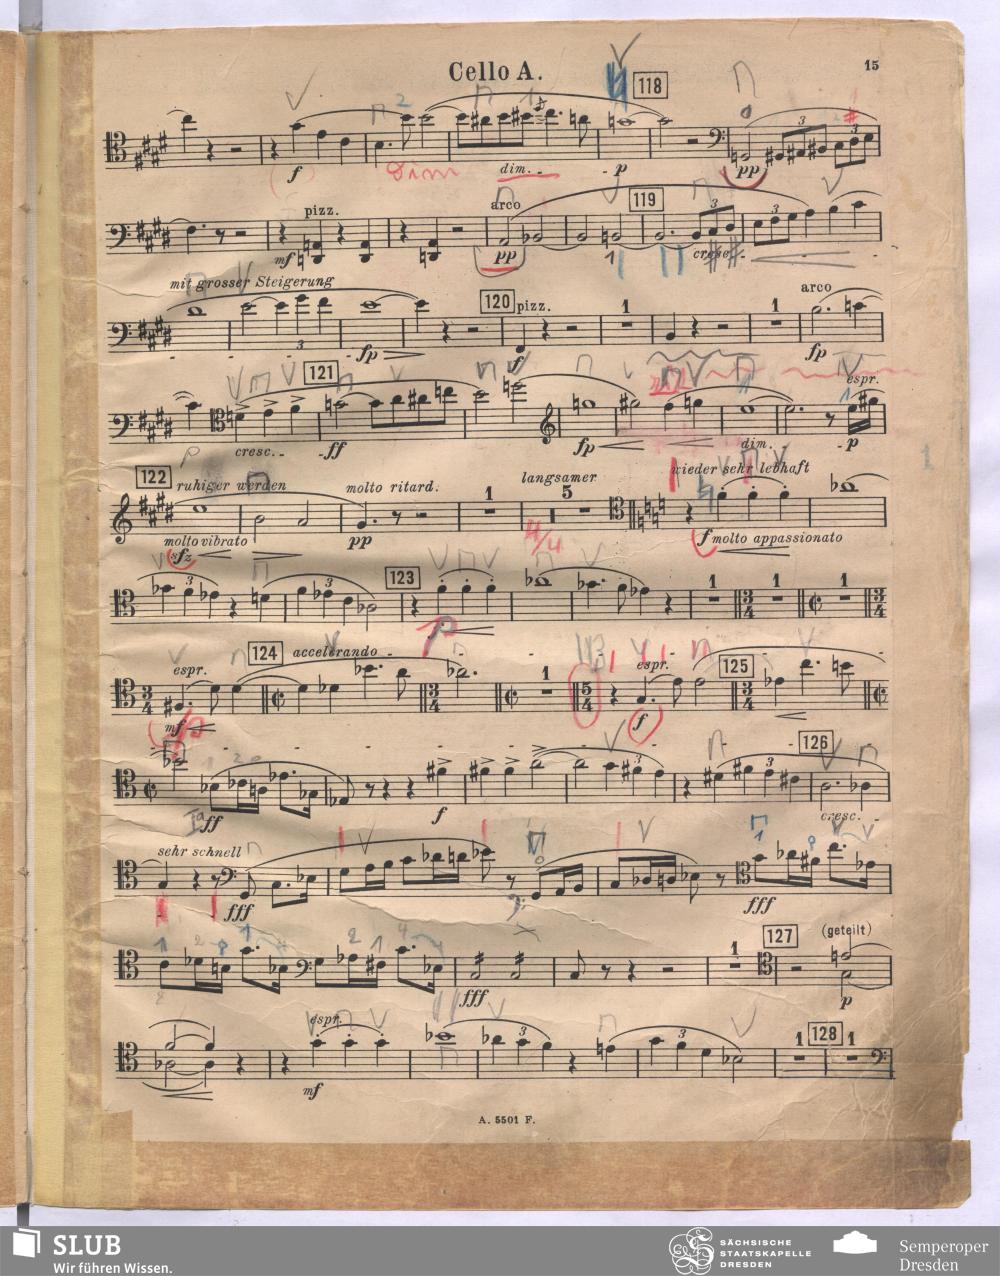 Cello A.
15
118
f
Dim
dim.
p
pp
3
3
pizz.
arco
119
mf
pp
cresc.
3
3
mit grosser Steigerung
120
pizz.
1
1
arco
3
fp
f
fp
121
espr.
cresc.
ff
fp
dim.
p
122
ruhiger werden
molto ritard.
1
langsamer
5
wieder sehr lebhaft
molto vibrato
sfz
pp
4/4
f molto appassionato
3
3
123
3
1
1
1
3/4
p
espr.
124
accelerando
1
espr.
125
3/4
3/4
5/4
3/4
mf
f
3
3
126
ff
f
cresc.
sehr schnell
fff
fff
1
127
(geteilt)
fff
p
espr.
3
3
1
128
1
mf
A. 5501 F.
SLUB
Wir führen Wissen.
SÄCHSISCHE
STAATSKAPELLE
DRESDEN
Semperoper
Dresden